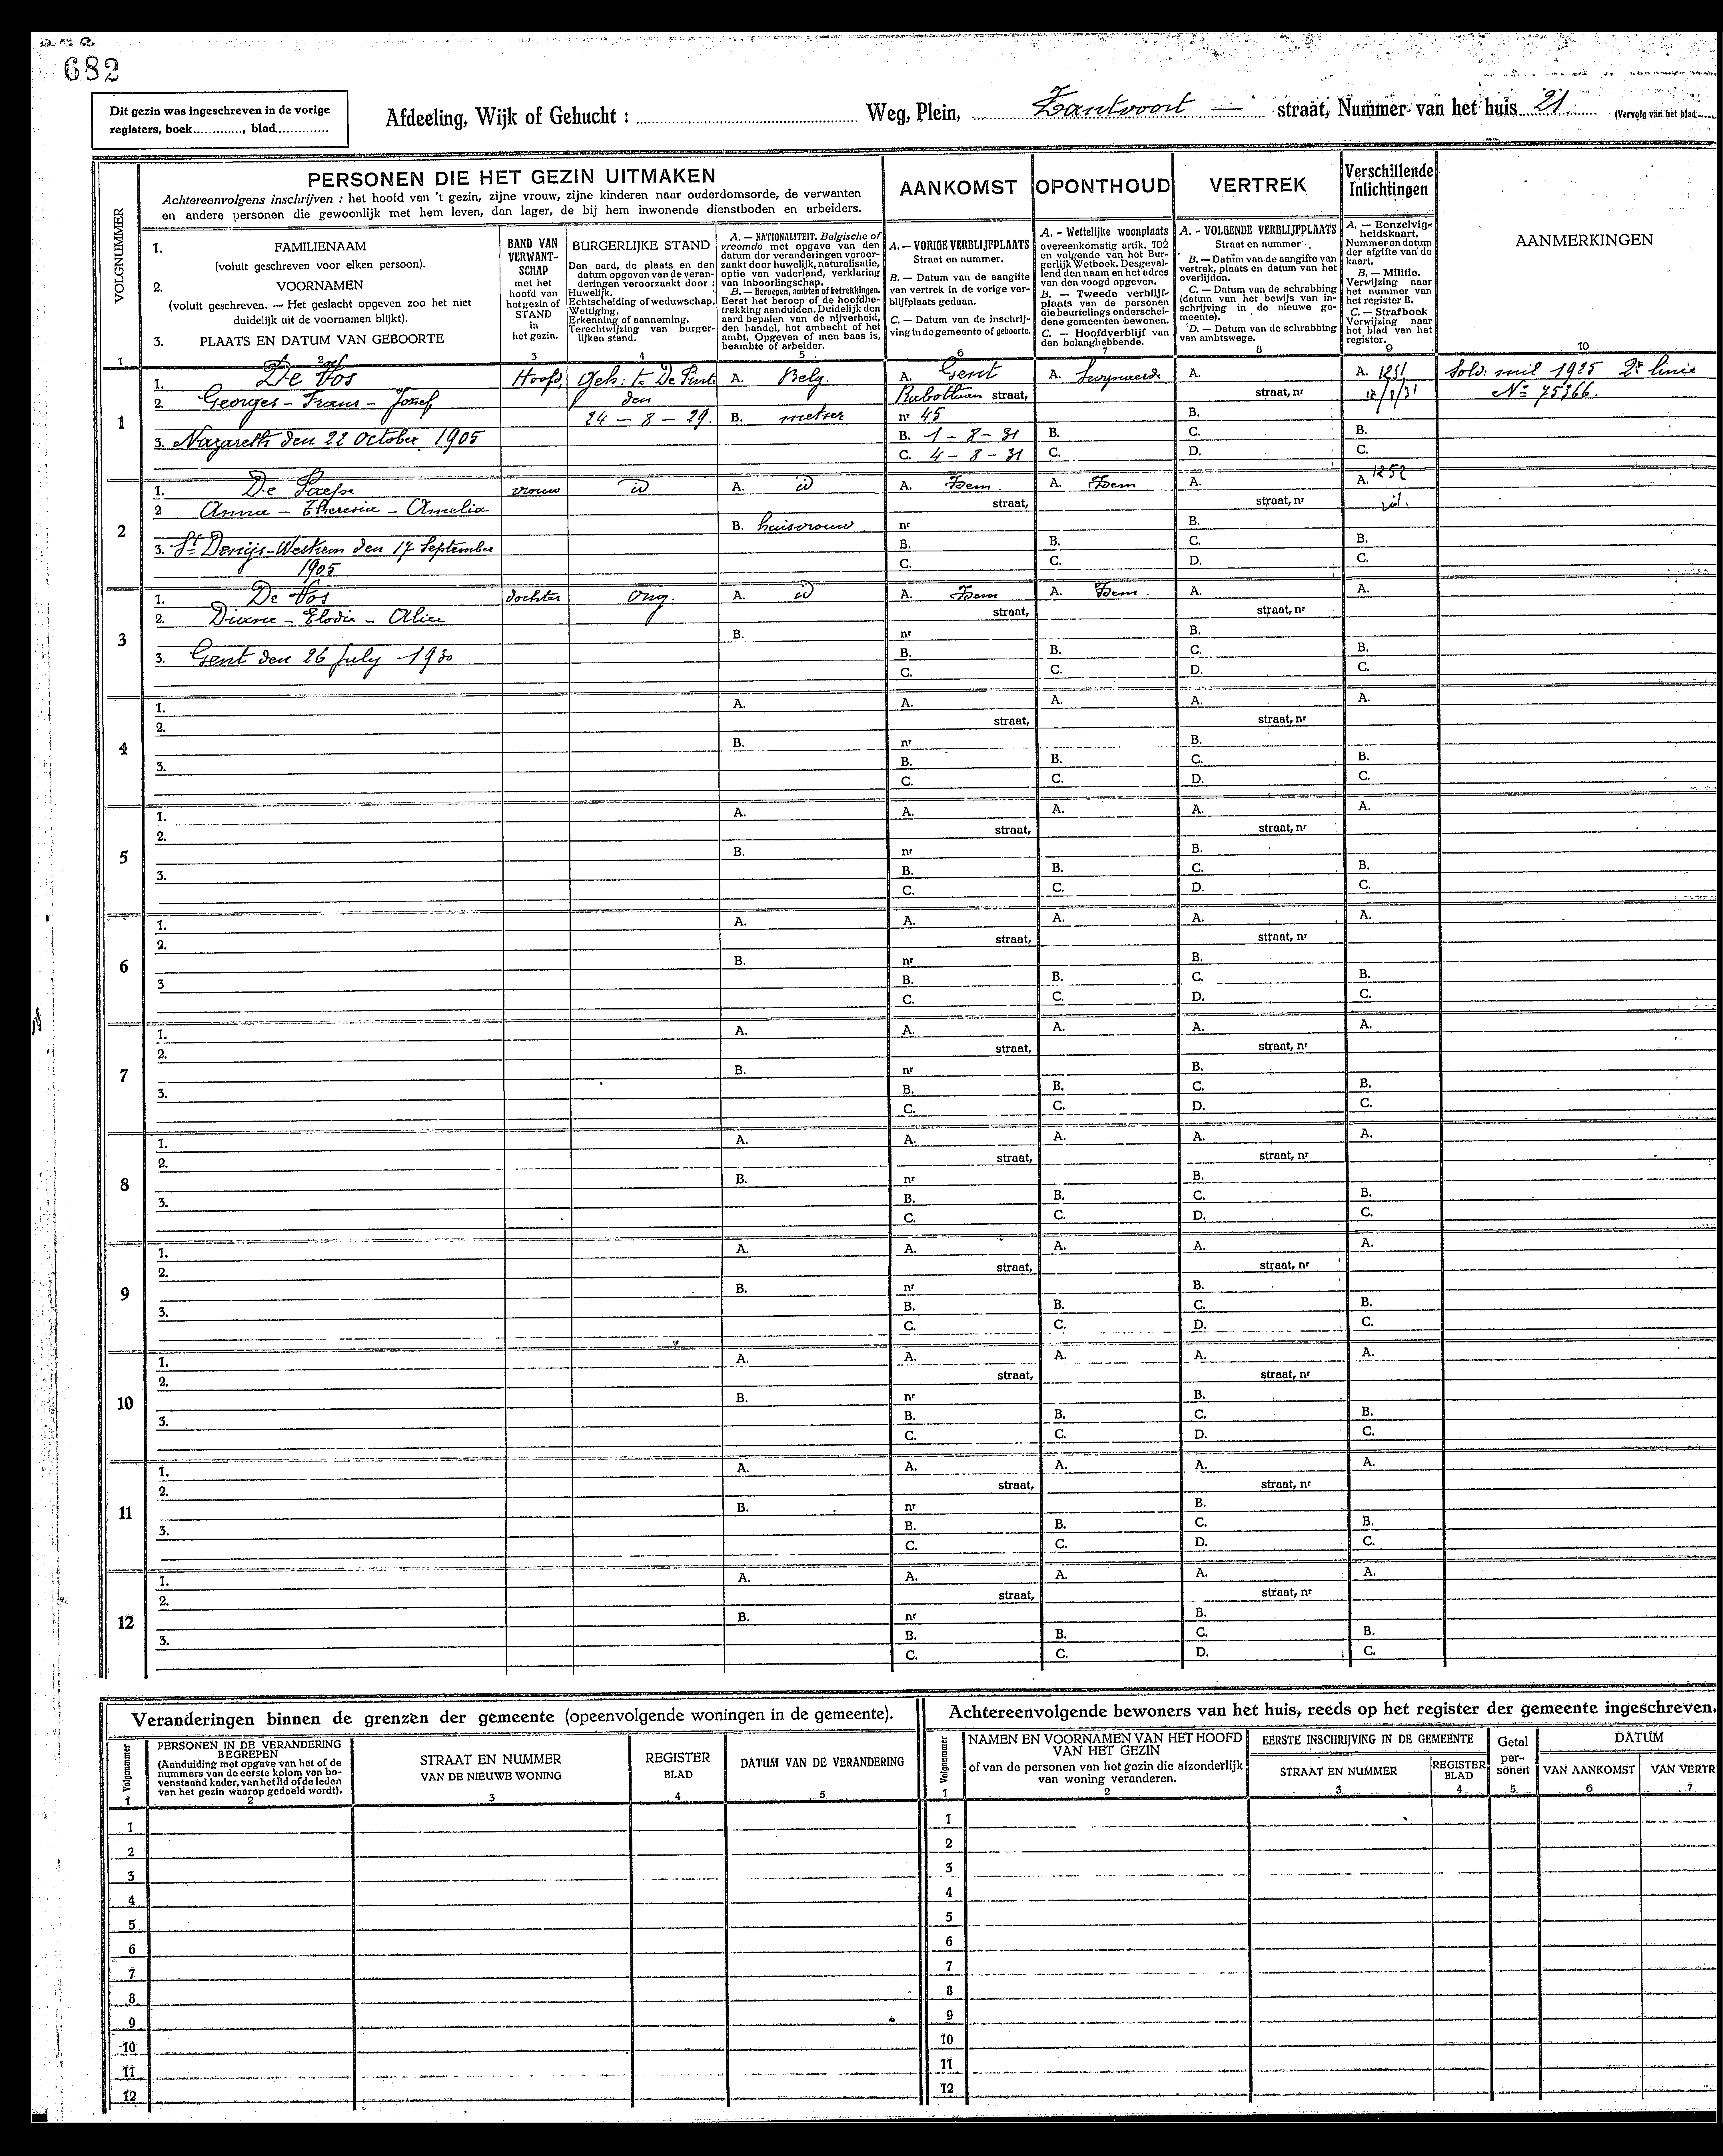 682
Dit gezin was ingeschreven in de vorige
registers, boek..............., blad..............
Afdeeling, Wijk of Gehucht : .............................. Weg, Plein, Zantvoort — straat, Nummer van het huis 21 (Vervolg van het blad......
VOLGNUMMER
PERSONEN DIE HET GEZIN UITMAKEN
Achtereenvolgens inschrijven : het hoofd van 't gezin, zijne vrouw, zijne kinderen naar ouderdomsorde, de verwanten
en andere personen die gewoonlijk met hem leven, dan lager, de bij hem inwonende dienstboden en arbeiders.
AANKOMST
OPONTHOUD
VERTREK
Verschillende
Inlichtingen
AANMERKINGEN
1. FAMILIENAAM
(voluit geschreven voor elken persoon).
2. VOORNAMEN
(voluit geschreven. — Het geslacht opgeven zoo het niet
duidelijk uit de voornamen blijkt).
3. PLAATS EN DATUM VAN GEBOORTE
BAND VAN
VERWANT-
SCHAP
met het
hoofd van
het gezin of
STAND
in
het gezin.
BURGERLIJKE STAND
Den aard, de plaats en den
datum opgeven van de veran-
deringen veroorzaakt door :
Huwelijk.
Echtscheiding of weduwschap.
Wettiging.
Erkenning of aanneming.
Terechtwijzing van burger-
lijken stand.
A. — NATIONALITEIT. Belgische of
vreemde met opgave van den
datum der veranderingen veroor-
zaakt door huwelijk, naturalisatie,
optie van vaderland, verklaring
van inboorlingschap.
B. — Beroepen, ambten of betrekkingen.
Eerst het beroep of de hoofdbe-
trekking aanduiden. Duidelijk den
aard bepalen van de nijverheid,
den handel, het ambacht of het
ambt. Opgeven of men baas is,
beambte of arbeider.
A. — VORIGE VERBLIJFPLAATS
Straat en nummer.
B. — Datum van de aangifte
van vertrek in de vorige ver-
blijfplaats gedaan.
C. — Datum van de inschrij-
ving in de gemeente of geboorte.
A. - Wettelijke woonplaats
overeenkomstig artik. 102
en volgende van het Bur-
gerlijk Wetboek. Desgeval-
lend den naam en het adres
van den voogd opgeven.
B. — Tweede verblijf-
plaats van de personen
die beurtelings onderschei-
dene gemeenten bewonen.
C. — Hoofdverblijf van
den belanghebbende.
A. - VOLGENDE VERBLIJFPLAATS
Straat en nummer
B. — Datum van de aangifte van
vertrek, plaats en datum van het
overlijden.
C. — Datum van de schrabbing
(datum van het bewijs van in-
schrijving in de nieuwe ge-
meente).
D. — Datum van de schrabbing
van ambtswege.
A. — Eenzelvig-
heidskaart.
Nummer en datum
der afgifte van de
kaart.
B. — Militie.
Verwijzing naar
het nummer van
het register B.
C. — Strafboek
Verwijzing naar
het blad van het
register.
1 2 3 4 5 6 7 8 9 10
1
1. De Vos Hoofd Geh: te De Pinte A. Belg. A. Gent A. Swynaerde A. A. 1251 Sold: mil 1925 2e linie
2. Georges - Frans - Jozef den straat, straat, nr N° 75366.
24 - 8 - 29. B. metser nr 45 B.
3. Nazareth den 22 October 1905 B. 1 - 8 - 31 B. C. B.
C. 4 - 8 - 31 C. D. C.
2
1. De vrouw id A. id A. Idem A. Idem A. A. 1252
2 Anna - Theresia - Amelia straat, straat, nr id.
B. huisvrouw nr B.
3. St Denijs-Westrem den 17 September B. B. C. B.
1905 C. C. D. C.
3
1. De Vos dochter Ong. A. id A. Idem A. Idem. A. A.
2. Diane - Elodie - Alice straat, straat, nr
B. nr B.
3. Gent den 26 July 1930 B. B. C. B.
C. C. D. C.
4
1. A. A. A. A. A.
2. straat, straat, nr
B. nr B.
3. B. B. C. B.
C. C. D. C.
5
1. A. A. A. A. A.
2. straat, straat, nr
B. nr B.
3. B. B. C. B.
C. C. D. C.
6
1. A. A. A. A. A.
2. straat, straat, nr
B. nr B.
3 B. B. C. B.
C. C. D. C.
7
1. A. A. A. A. A.
2. straat, straat, nr
B. nr B.
3. B. B. C. B.
C. C. D. C.
8
1. A. A. A. A. A.
2. straat, straat, nr
B. nr B.
3. B. B. C. B.
C. C. D. C.
9
1. A. A. A. A. A.
2. straat, straat, nr
B. nr B.
3. B. B. C. B.
C. C. D. C.
10
1. A. A. A. A. A.
2. straat, straat, nr
B. nr B.
3. B. B. C. B.
C. C. D. C.
11
1. A. A. A. A. A.
2. straat, straat, nr
B. nr B.
3. B. B. C. B.
C. C. D. C.
12
1. A. A. A. A. A.
2. straat, straat, nr
B. nr B.
3. B. B. C. B.
C. C. D. C.
Veranderingen binnen de grenzen der gemeente (opeenvolgende woningen in de gemeente).
Volgnummer
PERSONEN IN DE VERANDERING
BEGREPEN
(Aanduiding met opgave van het of de
nummers van de eerste kolom van bo-
venstaand kader, van het lid of de leden
van het gezin waarop gedoeld wordt).
STRAAT EN NUMMER
VAN DE NIEUWE WONING
REGISTER
BLAD
DATUM VAN DE VERANDERING
1 2 3 4 5
1
2
3
4
5
6
7
8
9
10
11
12
Achtereenvolgende bewoners van het huis, reeds op het register der gemeente ingeschreven.
Volgnummer
NAMEN EN VOORNAMEN VAN HET HOOFD
VAN HET GEZIN
of van de personen van het gezin die afzonderlijk
van woning veranderen.
EERSTE INSCHRIJVING IN DE GEMEENTE
STRAAT EN NUMMER
REGISTER
BLAD
Getal
per-
sonen
DATUM
VAN AANKOMST
VAN VERTR
1 2 3 4 5 6 7
1
2
3
4
5
6
7
8
9
10
11
12